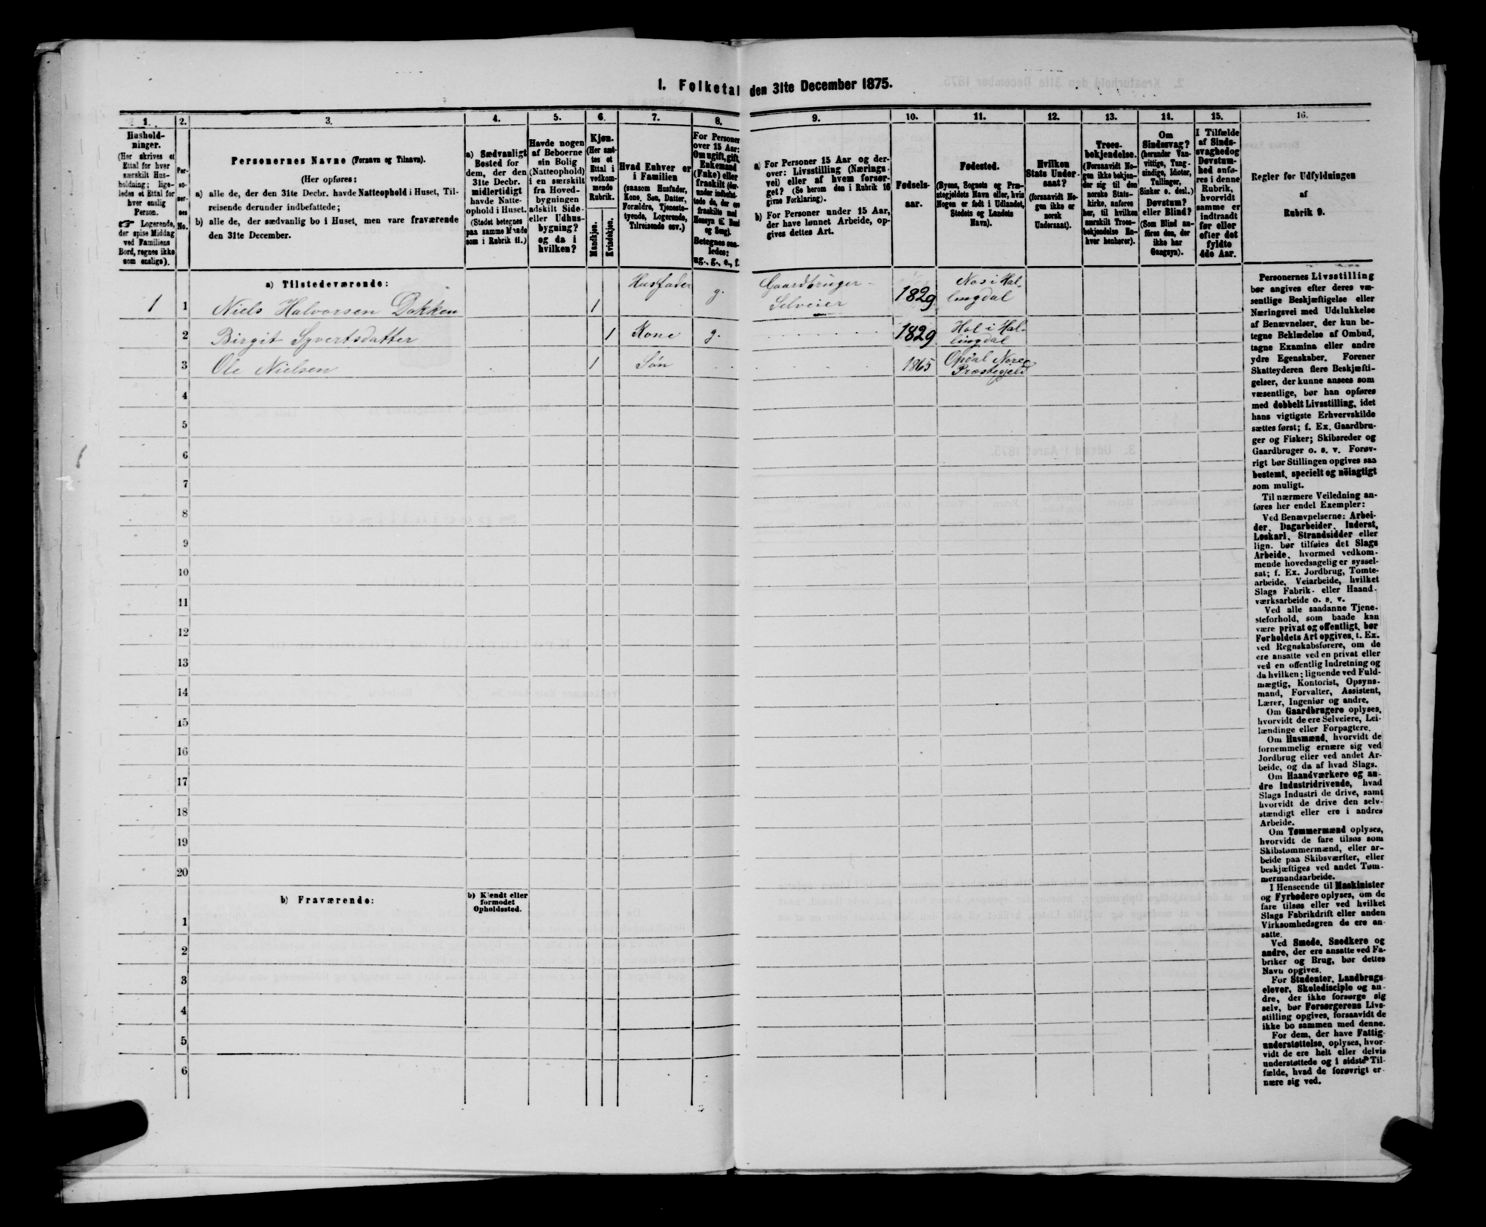 I. Folketal den 31te December 1875.
1.
2.
3.
4.
5.
6.
7.
8.
9.
10.
11.
12.
13.
14.
15.
16.
Hushold-
ninger.
(Her skrives et
Ettal for hver
særskilt Hus-
holdning; lige-
ledes et Ettal for
hver enslig
Person.
☞ Logerende,
der spise Middag
ved Familiens
Bord, regnes ikke
som enslige).
Per-
so-
ner-
nes
No.
Personernes Navne (Fornavn og Tilnavn).
(Her opføres:
a) alle de, der den 31te Decbr. havde Natteophold i Huset, Til-
reisende derunder indbefattede;
b) alle de, der sædvanlig bo i Huset, men vare fraværende
den 31te December.
a) Sædvanligt
Bosted for
dem, der den
31te Decbr.
midlertidigt
havde Natte-
ophold i Huset.
(Stedet betegnes
paa samme Maade
som i Rubrik 11.)
Havde nogen
af Beboerne
sin Bolig
(Natteophold)
i en særskilt
fra Hoved-
bygningen
adskilt Side-
eller Udhus-
bygning?
og da i
hvilken?
Kjøn.
(Her sæt-
tes et
Ettal i
vedkom-
mende
Rubrik.
Mandkjøn.
Kvindekjøn.
Hvad Enhver er
i Familien
(saasom Husfader,
Kone, Søn, Datter,
Forældre, Tjeneste-
tyende, Logerende,
Tilreisende osv.)
For Personer
over 15 Aar:
Om ugift, gift,
Enkemand
(Enke) eller
fraskilt
Betegnes saa-
ledes:
ug., g., e., f.
a) For Personer 15 Aar og der-
over: Livsstilling (Nærings-
vei) eller af hvem forsør-
get? (Se herom den i Rubrik 16
givne Forklaring).
b) For Personer under 15 Aar,
der have lønnet Arbeide, op-
gives dettes Art.
Fødsels-
aar.
Fødested.
(Byens, Sognets og Præ-
stegjeldets Navn eller, hvis
Nogen er født i Udlandet,
Stedets og Landets
Navn).
Hvilken
Stats Under-
saat?
(forsaavidt No-
gen ikke er
norsk
Undersaat).
Troes-
bekjendelse.
(Forsaavidt No-
gen ikke bekjen-
der sig til den
norske Stats-
kirke, anføres
her, til hvilken
særskilt Troes-
bekjendelse En-
hver henhører).
Om
Sindssvag?
(herunder Van-
vittige, Tung-
sindige, Idioter,
Tullinger,
Sinker o. desl.)
Døvstum?
eller Blind?
(Som Blind an-
føres den, der
ikke har
Gangsyn).
I Tilfælde
af Sinds-
svaghed og
Døvstum-
hed anfø-
res i denne
Rubrik,
hvorvidt
samme er
indtraadt
før eller
efter det
fyldte
4de Aar.
Regler for Udfyldningen
af
Rubrik 9.
a) Tilstedeværende:
1 1 Niels Halvorsen Dokken 1 Husfader g. Gaardbruger-Selveier 1829 Nas i Hallingdal
2 Birgit Syvertsdatter 1 Kone g. 1829 Hol i Hallingdal
3 Ole Nielsen 1 Søn 1865 Opdal Nore Præstegjeld
4
5
6
7
8
9
10
11
12
13
14
15
16
17
18
19
20
b) Fraværende:
b) Kjendt eller
formodet
Opholdssted.
1
2
3
4
5
6
Personernes Livsstilling
bør angives efter deres væ-
sentlige Beskjæftigelse eller
Næringsvei med Udelukkelse
af Benævnelser, der kun be-
tegne Beklædelse af Ombud,
tagne Examina eller andre
ydre Egenskaber. Forener
Skatteyderen flere Beskjæfti-
gelser, der kunne ansees som
væsentlige, bør han opføres
med dobbelt Livsstilling, idet
hans vigtigste Erhvervskilde
sættes først; f. Ex. Gaardbru-
ger og Fisker; Skibsreder og
Gaardbruger o. s. v. Forøv-
rigt bør Stillingen opgives saa
bestemt, specielt og nöiagtigt
som muligt.
Til nærmere Veiledning an-
føres her endel Exempler:
Ved Benævnelserne: Arbei-
der, Dagarbeider, Inderst,
Løskarl, Strandsidder eller
lign. bør tilføies det Slags
Arbeide, hvormed vedkom-
mende hovedsagelig er syssel-
sat; f. Ex. Jordbrug, Tomte-
arbeide, Veiarbeide, hvilket
Slags Fabrik- eller Haand-
værksarbeide o. s. v.
Ved alle saadanne Tjene-
steforhold, som baade kan
være privat og offentligt, bør
Forholdets Art opgives, t. Ex.
ved Regnskabsførere, om de
ere ansatte ved en privat eller
ved en offentlig Indretning og
da hvilken; lignende ved Fuld-
mægtig, Kontorist, Opsyns-
mand, Forvalter, Assistent,
Lærer, Ingeniør og andre.
Om Gaardbrugere oplyses,
hvorvidt de ere Selveiere, Lei-
lændinge eller Forpagtere.
Om Husmænd, hvorvidt de
fornemmelig ernære sig ved
Jordbrug eller ved andet Ar-
beide, og da af hvad Slags.
Om Haandværkere og an-
dre Industridrivende, hvad
Slags Industri de drive, samt
hvorvidt de drive den selv-
stændigt eller ere i andres
Arbeide.
Om Tømmermænd oplyses,
hvorvidt de fare tilsøs som
Skibstømmermænd, eller ar-
beide paa Skibsværfter, eller
beskjæftiges ved andet Tøm-
mermandsarbeide.
I Henseende til Maskinister
og Fyrbødere oplyses, om de
fare tilsøs eller ved hvilket
Slags Fabrikdrift eller anden
Virksomhedsgren de ere an-
satte.
Ved Smede, Snedkere og
andre, der ere ansatte ved Fa-
briker og Brug, bør dettes
Navn opgives.
For Studenter, Landbrugs-
elever, Skoledisciple og an-
dre, der ikke forsørge sig
selv, bør Forsørgerens Livs-
stilling opgives, forsaavidt de
ikke bo sammen med denne.
For dem, der have Fattig-
understøttelse, oplyses, hvor-
vidt de ere helt eller delvis
understøttede og i sidste Til-
fælde, hvad de forøvrigt er-
nære sig ved.